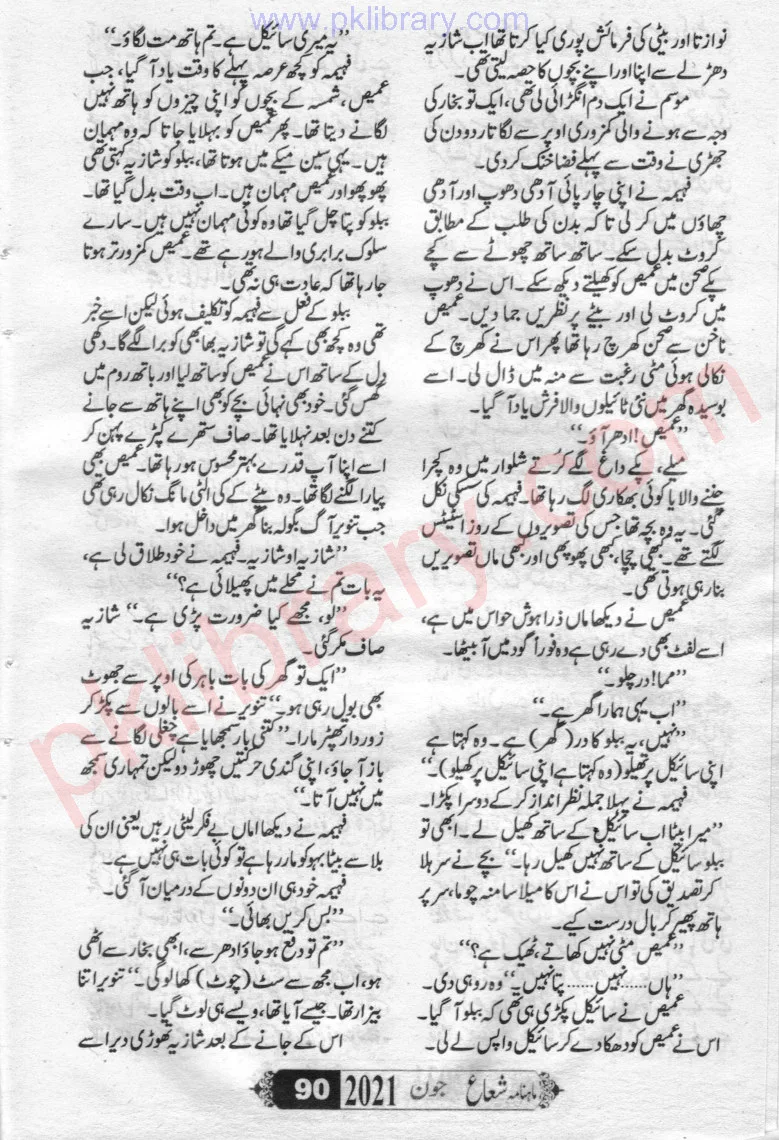 www.pklibrary.com
نوازتا اور بیٹی کی فرمائش پوری کیا کرتا تھا اب شازیہ
دھڑلے سے اپنا اور اپنے بچوں کا حصہ لیتی تھی۔
موسم نے ایک دم انگڑائی لی تھی، ایک تو بخار کی
وجہ سے ہونے والی کمزوری اوپر سے لگاتار دو دن کی
جھڑی نے وقت سے پہلے فضا خنک کر دی۔
فہیمہ نے اپنی چارپائی آدھی دھوپ اور آدھی
چھاؤں میں کر لی تاکہ بدن کی طلب کے مطابق
کروٹ بدل سکے۔ ساتھ ساتھ چھوٹے سے کچے
پکے صحن میں عمیص کو کھیلتے دیکھ سکے۔ اس نے دھوپ
میں کروٹ لی اور بیٹے پر نظریں جما دیں۔ عمیص
ناخن سے صحن کھرچ رہا تھا پھر اس نے کھرچ کے
نکالی ہوئی مٹی رغبت سے منہ میں ڈال لی۔ اسے
بوسیدہ گھر میں نئی ٹائیلوں والا فرش یاد آ گیا۔
”عمیص! ادھر آؤ۔“
میلے، پکے داغ لگے کرتے شلوار میں وہ کچرا
چننے والا یا کوئی بھکاری لگ رہا تھا۔ فہیمہ کی سسکی نکل
گئی۔ یہ وہ بچہ تھا جس کی تصویروں کے روز اسٹیٹس
لگتے تھے۔ کبھی چچا، کبھی پھوپھی اور کبھی ماں تصویریں
بنا رہی ہوتی تھی۔
عمیص نے دیکھا ماں ذرا ہوش حواس میں ہے،
اسے لفٹ بھی دے رہی ہے وہ فوراً گود میں آ بیٹھا۔
”مما! در چلو۔“
”اب یہی ہمارا گھر ہے۔“
”نہیں، یہ ببلو کا در (گھر) ہے۔ وہ کہتا ہے
اپنی سائیکل پر تھیلو (وہ کہتا ہے اپنی سائیکل پر کھیلو)۔“
فہیمہ نے پہلا جملہ نظر انداز کر کے دوسرا پکڑا۔
”میرا بیٹا اب سائیکل کے ساتھ کھیل لے۔ ابھی تو
ببلو سائیکل کے ساتھ نہیں کھیل رہا۔“ بچے نے سر ہلا
کر تصدیق کی تو اس نے اس کا میلا سا منہ چوما، سر پر
ہاتھ پھیر کر بال درست کیے۔
”عمیص مٹی نہیں کھاتے، ٹھیک ہے؟“
”ہاں ..... نہیں ...... پتا نہیں۔“ وہ رو ہی دی۔
عمیص نے سائیکل پکڑی ہی تھی کہ ببلو آ گیا۔
اس نے عمیص کو دھکا دے کر سائیکل واپس لے لی۔
”یہ میری سائیکل ہے۔ تم ہاتھ مت لگاؤ۔“
فہیمہ کو کچھ عرصہ پہلے کا وقت یاد آ گیا، جب
عمیص، شمسہ کے بچوں کو اپنی چیزوں کو ہاتھ نہیں
لگانے دیتا تھا۔ پھر عمیص کو بہلایا جاتا کہ وہ مہمان
ہیں۔ یہی سین میکے میں ہوتا تھا، ببلو کو شازیہ کہتی تھی
پھوپھو اور عمیص مہمان ہیں۔ اب وقت بدل گیا تھا۔
ببلو کو پتا چل گیا تھا وہ کوئی مہمان نہیں ہیں۔ سارے
سلوک برابری والے ہو رہے تھے۔ عمیص کمزور تر ہوتا
جا رہا تھا کہ عادت ہی نہ تھی۔
ببلو کے فعل سے فہیمہ کو تکلیف ہوئی لیکن اسے خبر
تھی وہ کچھ بھی کہے گی تو شازیہ بھابھی کو برا لگے گا۔ دکھی
دل کے ساتھ اس نے عمیص کو ساتھ لیا اور باتھ روم میں
گھس گئی۔ خود بھی نہائی بچے کو بھی اپنے ہاتھ سے جانے
کتنے دن بعد نہلایا تھا۔ صاف ستھرے کپڑے پہن کر
اسے اپنا آپ قدرے بہتر محسوس ہو رہا تھا۔ عمیص بھی
پیارا لگنے لگا تھا۔ وہ بیٹے کے کی الٹی مانگ نکال رہی تھی
جب تنویر آگ بگولہ بنا گھر میں داخل ہوا۔
”شازیہ او شازیہ۔ فہیمہ نے خود طلاق لی ہے،
یہ بات تم نے محلے میں پھیلائی ہے؟“
”لو، مجھے کیا ضرورت پڑی ہے۔“ شازیہ
صاف مکر گئی۔
”ایک تو گھر کی بات باہر کی اوپر سے جھوٹ
بھی بول رہی ہو۔“ تنویر نے اسے بالوں سے پکڑ کر
زور دار تھپڑ مارا۔ ”کتنی بار سمجھایا ہے چغلی لگانے سے
باز آ جاؤ، اپنی گندی حرکتیں چھوڑ دو لیکن تمہاری سمجھ
میں نہیں آتا۔“
فہیمہ نے دیکھا اماں بے فکر لیٹی رہیں یعنی ان کی
بلا سے بیٹا بہو کو مار رہا ہے تو کوئی بات ہی نہیں ہے۔
فہیمہ خود ہی ان دونوں کے درمیان آ گئی۔
”بس کریں بھائی۔“
”تم تو دفع ہو جاؤ ادھر سے، ابھی بخار سے اٹھی
ہو، اب مجھ سے سٹ (چوٹ) کھا لو گی۔“ تنویر اتنا
بیزار تھا۔ جیسے آیا تھا، ویسے ہی لوٹ گیا۔
اس کے جانے کے بعد شازیہ تھوڑی دیر اسے
ماہنامہ شعاع جون 2021 90
pklibrary.com